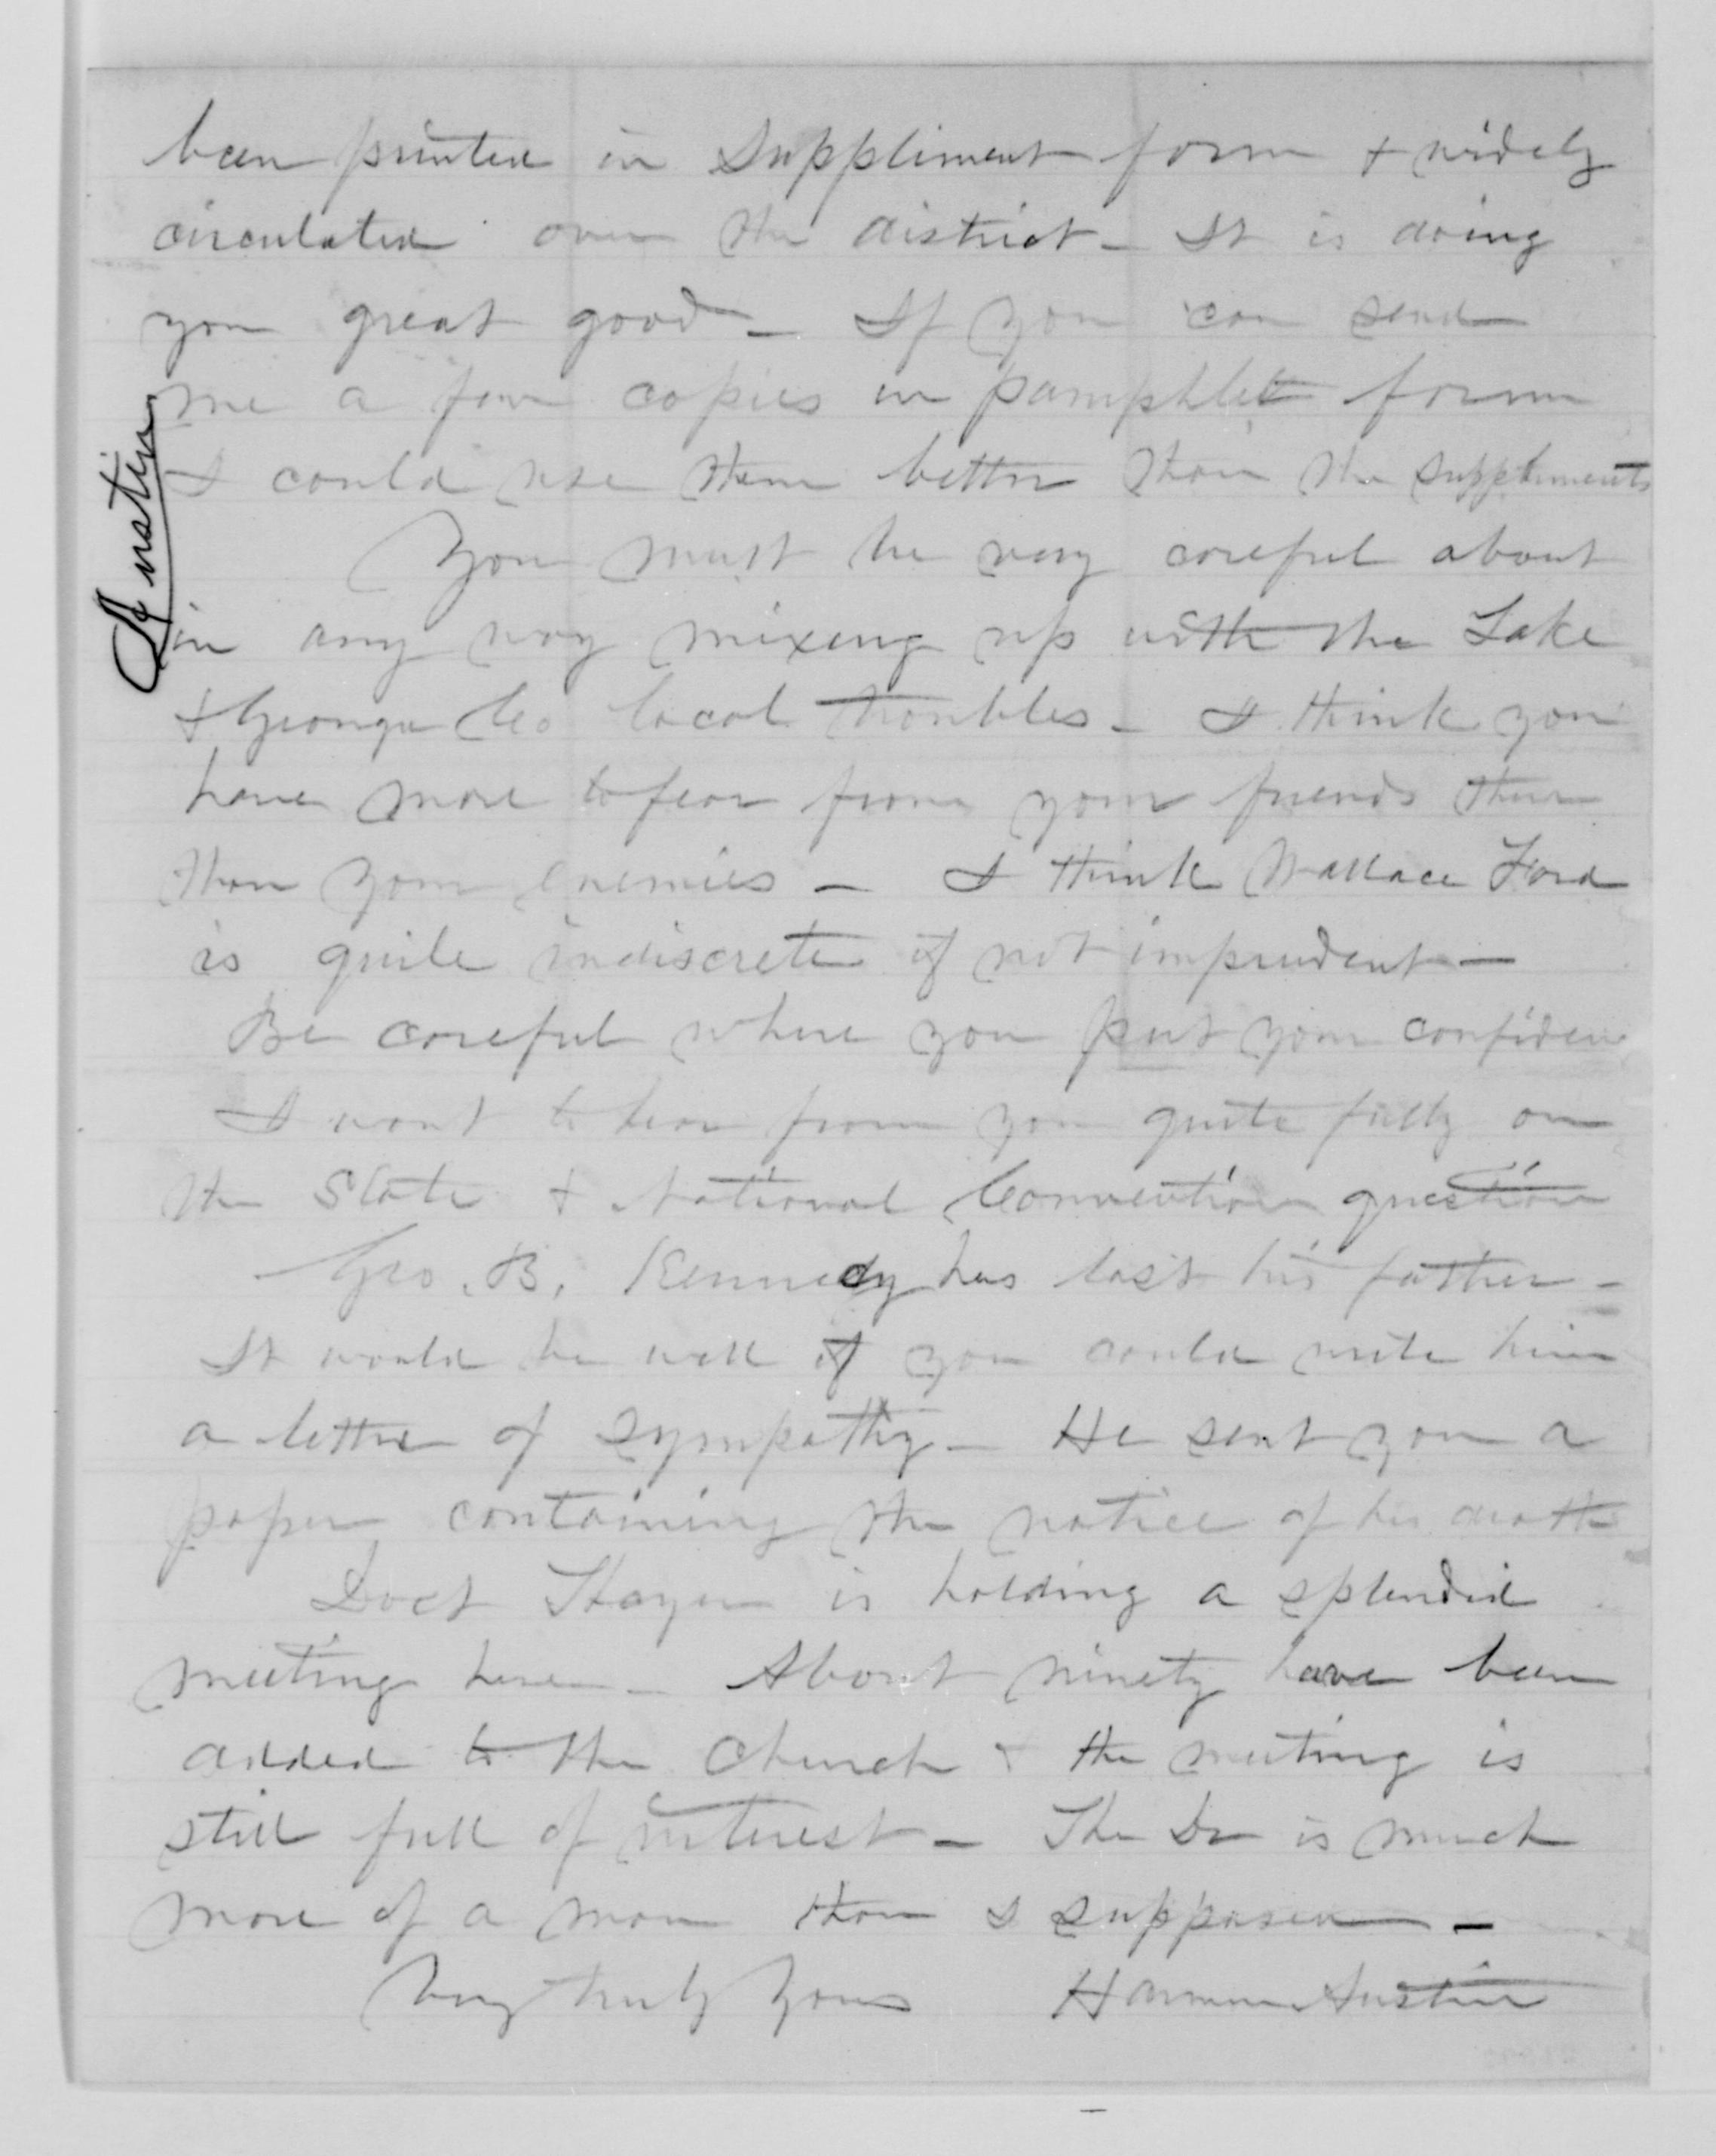 been printed in Suppliment form + widely
circulated over the district - It is doing
you great good - If you can send
me a few copies in pamphlet form
I could use them better than the suppliments
You must be very careful about
in any way mixing up with the Lake
+ Geauga Co local troubles - I think you
have more to fear from your friends there
than your enemies - I think Wallace Ford
is quite indiscrete if not imprudent -
Be careful where you put your confidence
I want to hear from you quite fully on
the State + National Convention question
Geo. B. Kennedy has lost his father -
It would be well if you could write him
a letter of sympathy - He sent you a
paper containing the notice of his death
Doct is holding a splendid
meeting here - About ninety have been
added to the Church + the meeting is
still full of interest - The Dr is much
more of a man than I supposed -
Very truly Yours Harmon Austin
Austin